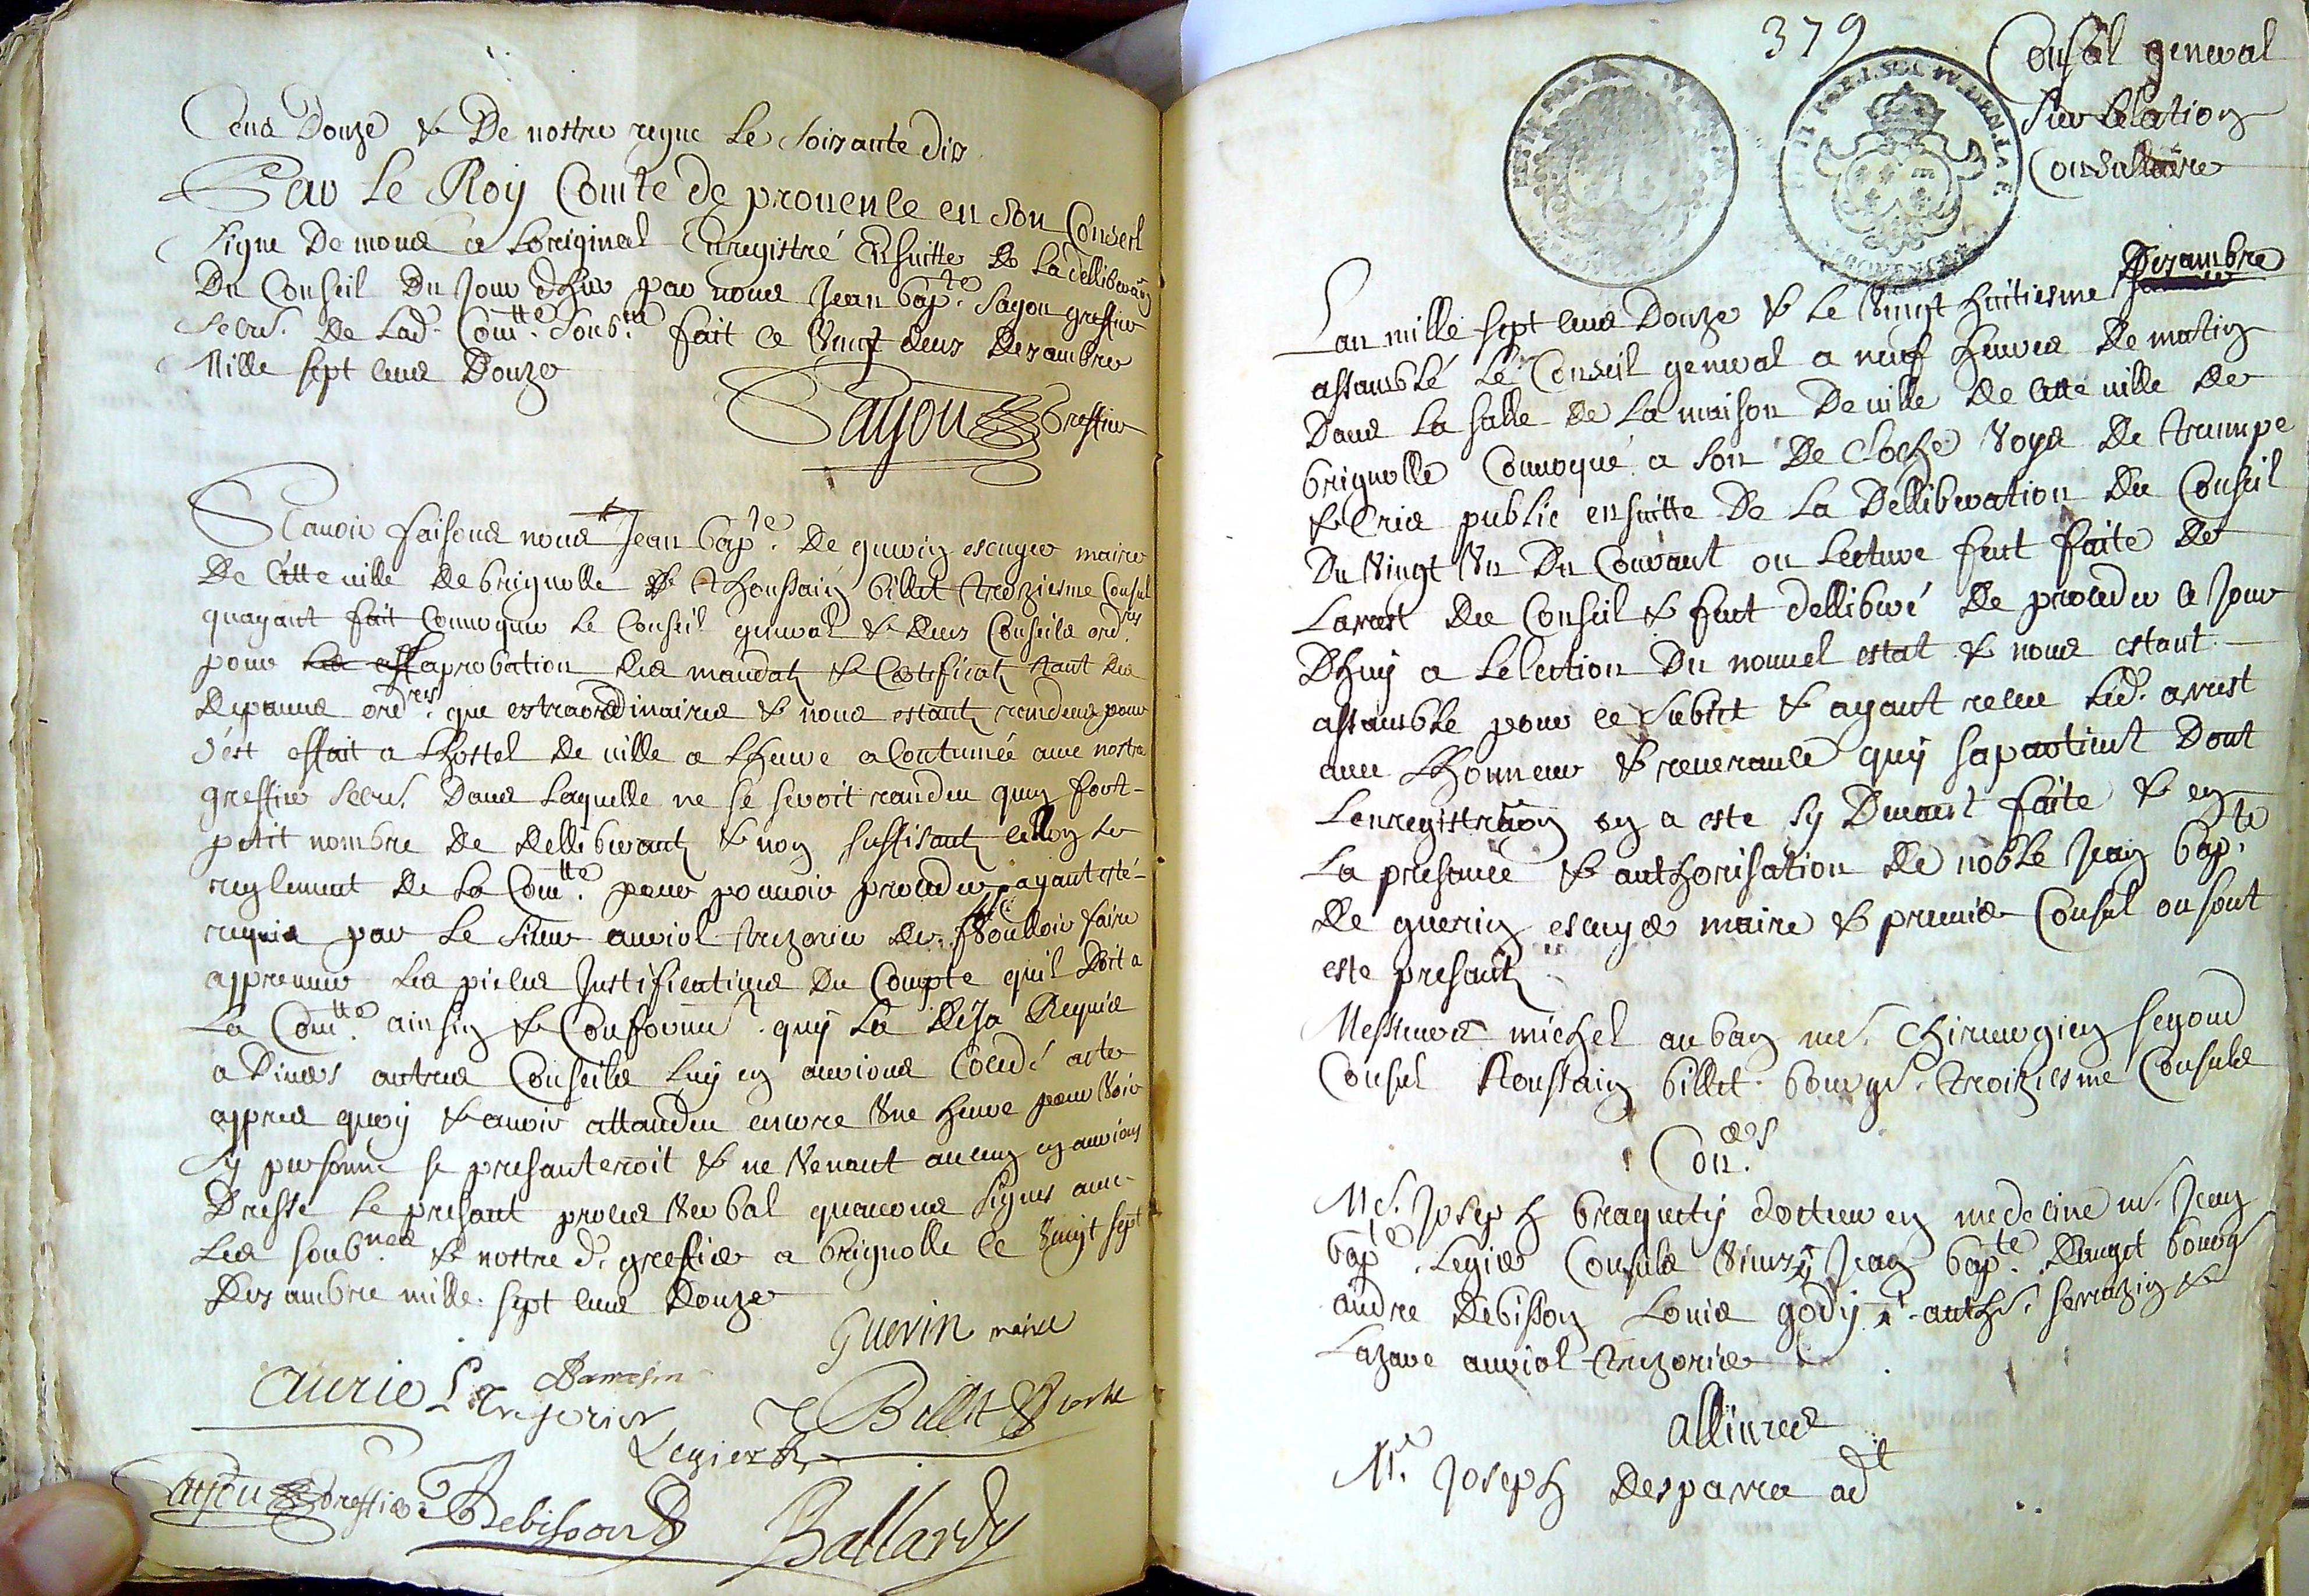 Cens Douze & De nostre regne Le Soixante dix
Par Le Roy Comte de provence en son Conseil
Signé De mons a Loriginal Enregistré Ensuitte De La delliberaõn
Du Conseil Du Jour dhuy par nous Jean bapte Sayou greffier
Secre. De Lad. Comtté Soubné fait ce Vingt deux Dexambre
Mille sept cens Douze
Sayou Greffier
Scavoir faisons nous Jean bapte De guerin escuyer maire
De Cette ville de brignolle & Thoussain billet troiziesme Consul
quayant fait Convoquer Le Conseil general & deux Conseils ordres
pour Les aff aprobation des mandatz & Certificatz tant des
depances ordres que extraordinaires & nous estantz randeus pour
c'est effait a Lhostel De ville a Lheure acoutumée avec nostre
greffier Secre. Dans Laquelle ne se seroit randeu quun fort
petit nombre de delliberantz & non suffisantz cellon Le
reglement de La Comtté pour pouvoir proceder ayant esté
requis par Le Sieur auriol trezorier de Voulloir faire
appreuver Les pieces Justificatives Du Compte quil Doit a
La Comtté ainsin & Conformé quy La deja Requis
a Divers autres Conseils Luy en aurions Concédé acte
appres quoy & avoir attandeu encore Une heure pour Voir
Sy personne se presanteroit & ne Venant aucun en aurions
Dressé Le presant proces Verbal quavons Signés avec
Les soubnés & nostre d. greffier a brignolle ce Vingt sept
Dexambre mille sept cens Douze
Guerin maire
Auriol Trezorier
Billet
Legier
Sayou Greffier Debisson Ballardy
379
Conseil general
Sur Lelation
Consullaire
Lan mille sept cens Douze & Le Vingt huitiesme Janvier Dexambre
assamblé Le Conseil general a neuf heures De matin
Dans La salle De La maison De ville De Cette ville de
brignolle Convoqué a son De Cloche Voye De trumpe
& Cris public ensuitte De La Delliberation du Conseil
Du Vingt Un Du Courant ou Lecture fut faite de
Larrest du Conseil & fut delliberé De proceder ce Jour
Dhuy a Lelection Du nouvel estat & nous estant
assamblé pour ce Subiet & ayant releu Led. arrest
avec Lhonneur & reverance quy sapartient Dont
Lenregistraõn en a esté sy Devant faite & en
La presance & authorisation de noble Jean bapte
de guerin escuyer maire & premier Consul ou sont
esté presantz
Messieurs michel auban me. chirurgien segond
Consul Thoussain billet bourgs. troiziesme Consuls
Coners
Me. Joseph braquety docteur en medecine me. Jean
bapte Legier Consuls Vieux Jean bapte Dauget bourgs
andre Debisson Louis gody anthe. serrazin &
Lazare auriol trezorier
allivres
Me. Joseph Desparra adt